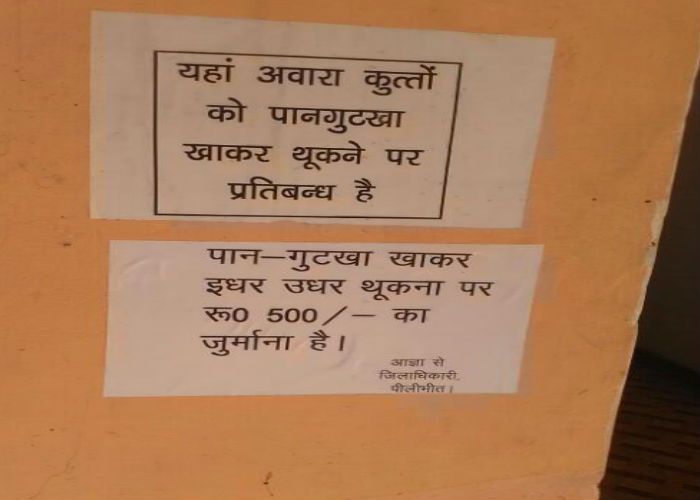 यहां अवारा कुत्तों
को पानगुटखा
खाकर थूकने पर
प्रतिबन्ध है
पान–गुटखा खाकर
इधर उधर थूकना पर
रू0 500/– का
जुर्माना है।
आज्ञा से
जिलाधिकारी,
पीलीभीत।